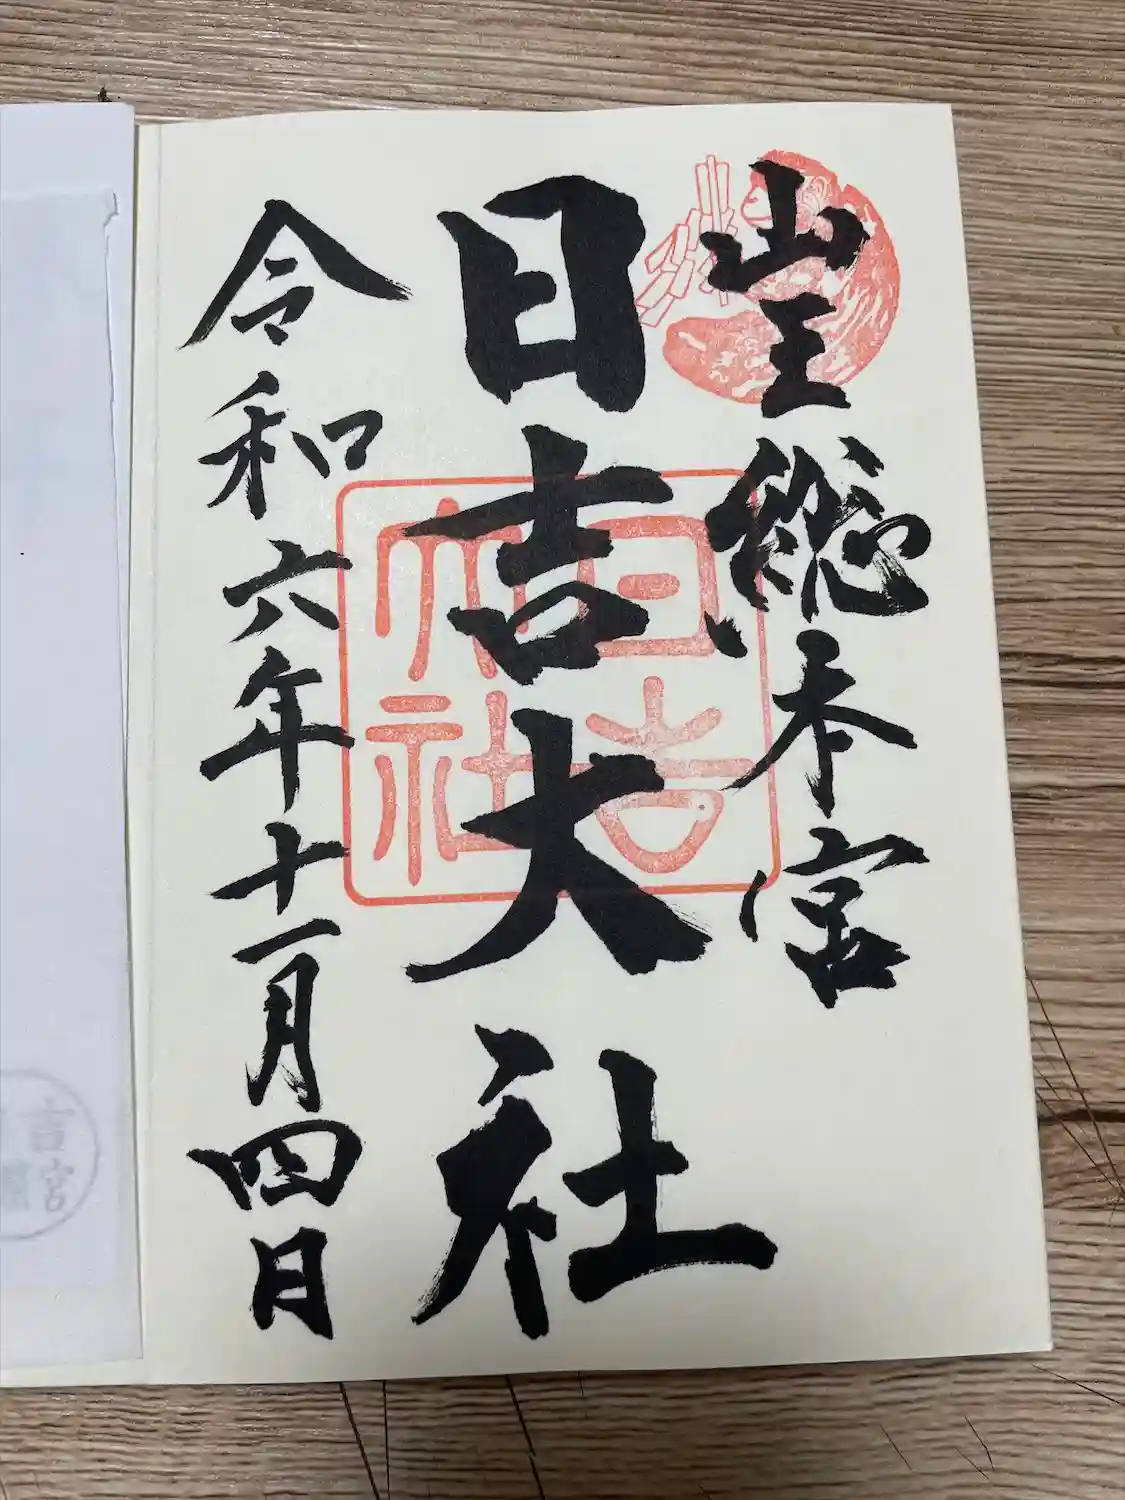 山王総本宮
日吉大社
日吉
大社
令和六年十一月四日
吉宮